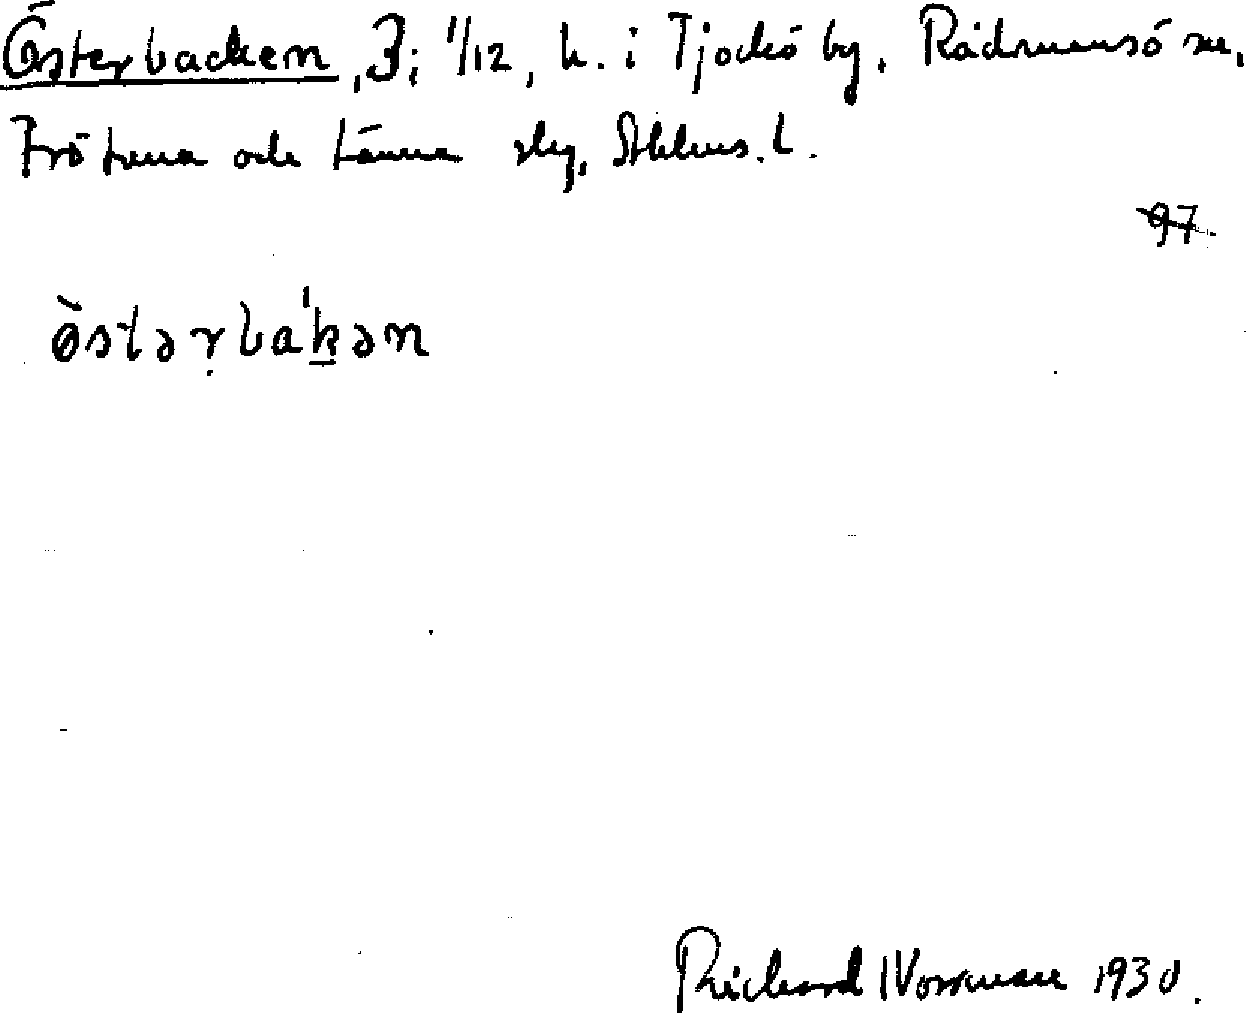 Österbacken, 3; 1/12, h. i Tjockö by, Rådmansö sn,
Frötuna och Länna skg, Sthlms. l.
97
ö̀stərba'kən
Richard Norrman 1930.